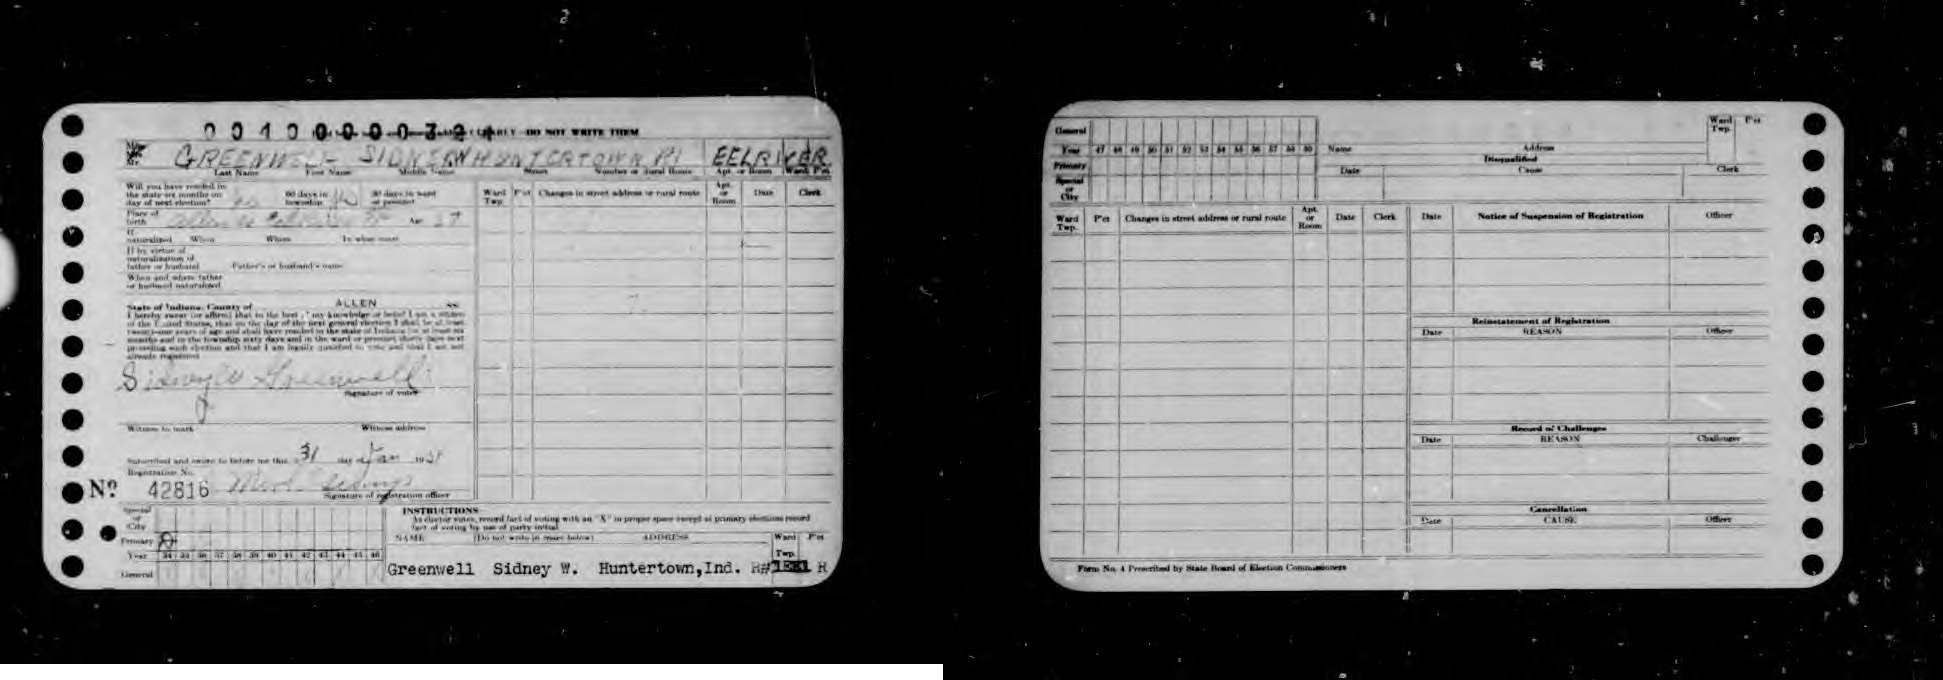 DO NOT WRITE THEM
GREENWELL SIDNEY W HUNTERTOWN R1 EEL RIVER
Last Name First Name Middle Name Street Number or Rural Route Apt. or Room Ward P'ct
Will you have resided in 60 days in 30 days in ward
the state six months on township or precinct
day of next election?
Place of
birth Age 27
If
naturalized When Where In what court
If by virtue of
naturalization of
father or husband Father's or husband's name
When and where father
or husband naturalized
Ward Twp. P'ct Changes in street address or rural route Apt. or Room Date Clerk
State of Indiana, County of ALLEN ss:
I hereby swear (or affirm) that to the best of my knowledge or belief I am a citizen
of the United States, that on the day of the next general election I shall be at least
twenty-one years of age and shall have resided in the state of Indiana for at least six
months and in the township sixty days and in the ward or precinct thirty days next
preceding such election and that I am legally qualified to vote and that I am not
already registered
Sidney W Greenwell
Signature of voter
Witness to mark Witness address
Subscribed and sworn to before me this 31 day Jan 19
Registration No.
No. 42816
Signature of registration officer
Special
or
City
Primary R
Year 34 35 36 37 38 39 40 41 42 43 44 45 46
General
INSTRUCTIONS
As elector votes, record fact of voting with an "X" in proper space except at primary elections record
fact of voting by use of party initial
NAME (Do not write in space below) ADDRESS Ward Twp. P'ct
Greenwell Sidney W. Huntertown,Ind. R#1 R
General
Year 47 48 49 50 51 52 53 54 55 56 57 58 59
Primary
Special
or
City
Name Address Ward Twp. P'ct
Disqualified
Date Cause Clerk
Ward Twp. P'ct Changes in street address or rural route Apt. or Room Date Clerk
Date Notice of Suspension of Registration Officer
Reinstatement of Registration
Date REASON Officer
Record of Challenges
Date REASON Challenger
Cancellation
Date CAUSE Officer
Form No. 4 Prescribed by State Board of Election Commissioners